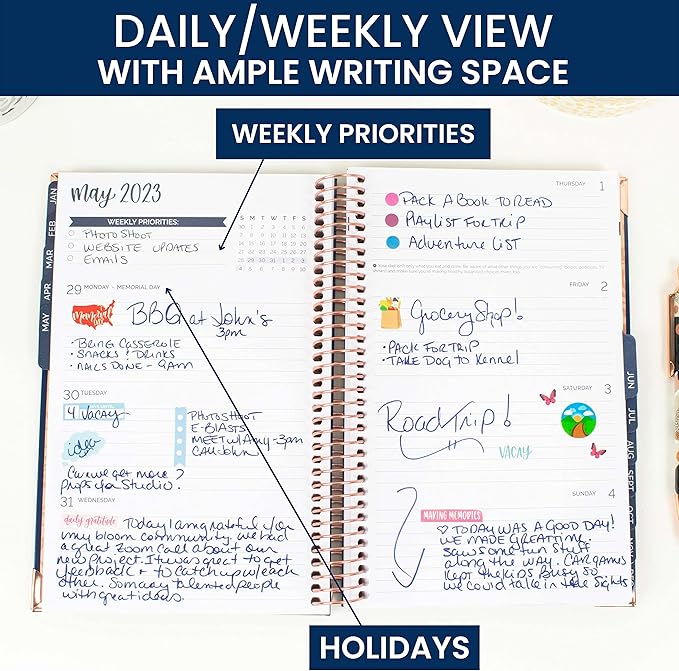 DAILY/WEEKLY VIEW
WITH AMPLE WRITING SPACE
WEEKLY PRIORITIES
may 2023
WEEKLY PRIORITIES:
PHOTO SHOOT
WEBSITE UPDATES
EMAILS
S M T W T F S
30 1 2 3 4 5 6
7 8 9 10 11 12 13
14 15 16 17 18 19 20
21 22 23 24 25 26 27
28 29 30 31 1 2 3
4 5 6 7 8 9 10
JAN
FEB
MAR
APR
MAY
29 MONDAY - MEMORIAL DAY
Memorial
DAY
BBQ at John's
3pm
• BRING CASSEROLE
• SNACKS & DRINKS
• NAILS DONE - 9AM
30 TUESDAY
4 Vacay
idea
PHOTO SHOOT
E-BLASTS
MEET w/ Amy - 3pm
CALL John
Can we get more
props for Studio?
31 WEDNESDAY
daily gratitude Today I am grateful for
my bloom community. We had
a great zoom call about our
new project. It was great to get
feedback + to catch up w/each
other. So many talented people
with great ideas.
THURSDAY 1
PACK A BOOK TO READ
Playlist FOR TRIP
Adventure LIST
FRIDAY 2
Grocery Shop!
• PACK FOR TRIP
• TAKE DOG TO Kennel
SATURDAY 3
Road Trip!
VACAY
SUNDAY 4
MAKING MEMORIES
TODAY WAS A GOOD DAY!
WE MADE GREAT TIME.
SAW SOME FUN STUFF
along the way. CAR games
kept the kids busy so
we could take in the sights
JUN
JUL
AUG
SEPT
OCT
HOLIDAYS